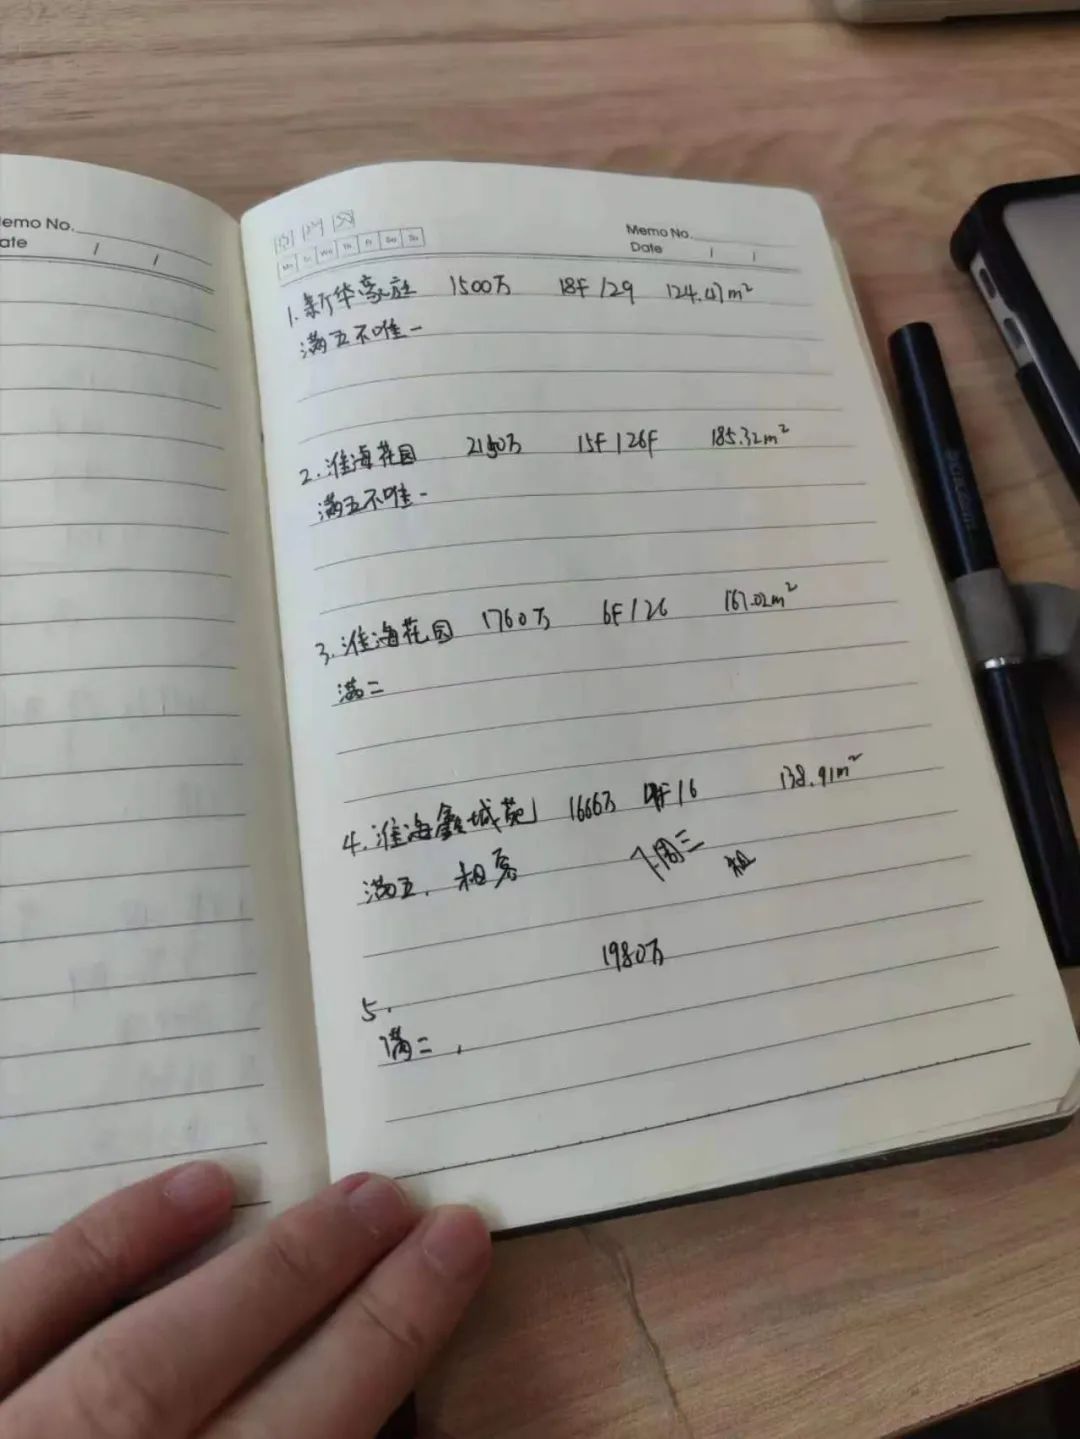 emo No.
ate / /
Memo No.
Date / /
Mo Tu We Th Fr Sa Su
1.新华豪庭 1500万 18F/29 124.47m²
满五不唯一
2.淮海花园 2150万 15F/26F 185.32m²
满五不唯一
3.淮海花园 1760万 6F/26 167.02m²
满二
4.淮海鑫城苑 1666万 F/16 138.91m²
满五. 租客 下周三 租
1980万
5.
满二,